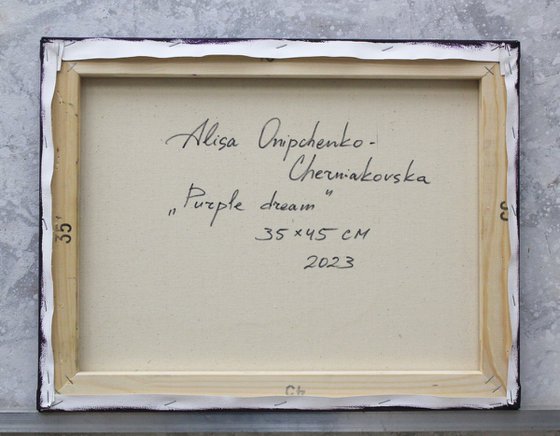 Alisa Onipchenko-
Cherniakovska
„Purple dream"
35×45 см
2023
35